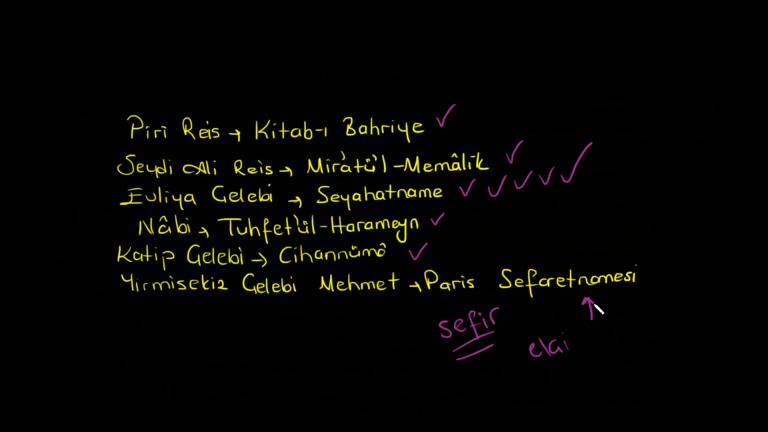 Piri Reis → Kitab-ı Bahriye ✓
Seydi Ali Reis → Mir'atü'l-Memâlik ✓
Evliya Çelebi → Seyahatname ✓ ✓ ✓ ✓ ✓
Nâbi → Tuhfetü'l-Harameyn ✓
Katip Çelebi → Cihannümâ ✓
Yirmisekiz Çelebi Mehmet → Paris Sefaretnamesi
sefir
elçi